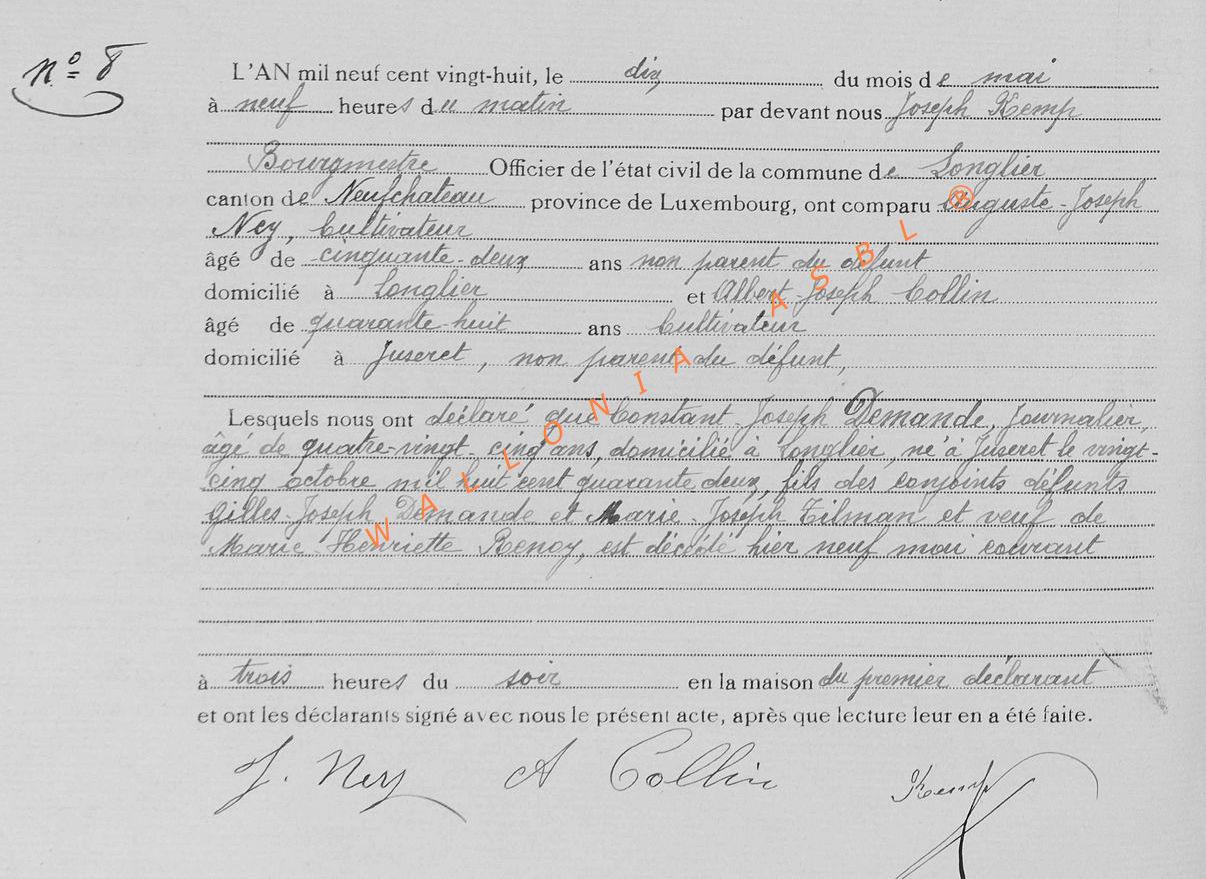 n° 8
L'AN mil neuf cent vingt-huit, le dix du mois de mai
à neuf heures du matin par devant nous Joseph Kemp
Bourgmestre Officier de l'état civil de la commune de Longlier
canton de Neufchateau province de Luxembourg, ont comparu Auguste-Joseph
Ney, Cultivateur
âgé de cinquante-deux ans non parent du défunt
domicilié à Longlier et Albert-Joseph Collin
âgé de quarante-huit ans Cultivateur
domicilié à Juseret, non parent du défunt,
Lesquels nous ont déclaré que Constant-Joseph Demande, Journalier,
âgé de quatre-vingt-cinq ans, domicilié à Longlier, né à Juseret le vingt-
cinq octobre mil huit cent quarante deux, fils des conjoints défunts
Gilles-Joseph Demande et Marie-Joseph Tilman et veuf de
Marie-Henriette Renoy, est décédé hier neuf mai courant
à trois heures du soir en la maison du premier déclarant
et ont les déclarants signé avec nous le présent acte, après que lecture leur en a été faite.
J. Ney A Collin Kemp
WALLONIA ASBL ®